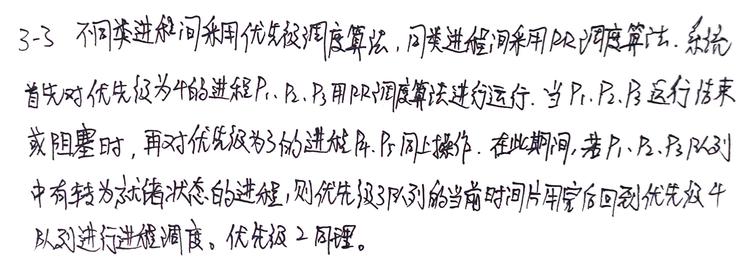 3-3 不同类进程间采用优先级调度算法,同类进程间采用RR调度算法.系统
首先对优先级为4的进程P₁、P₂、P₃用RR调度算法进行运行.当P₁、P₂、P₃运行结束
或阻塞时,再对优先级为3的进程P₄、P₅同上操作.在此期间,若P₁、P₂、P₃队列
中有转为就绪状态的进程,则优先级3队列的当前时间片用完后回到优先级4
队列进行进程调度。优先级2同理。